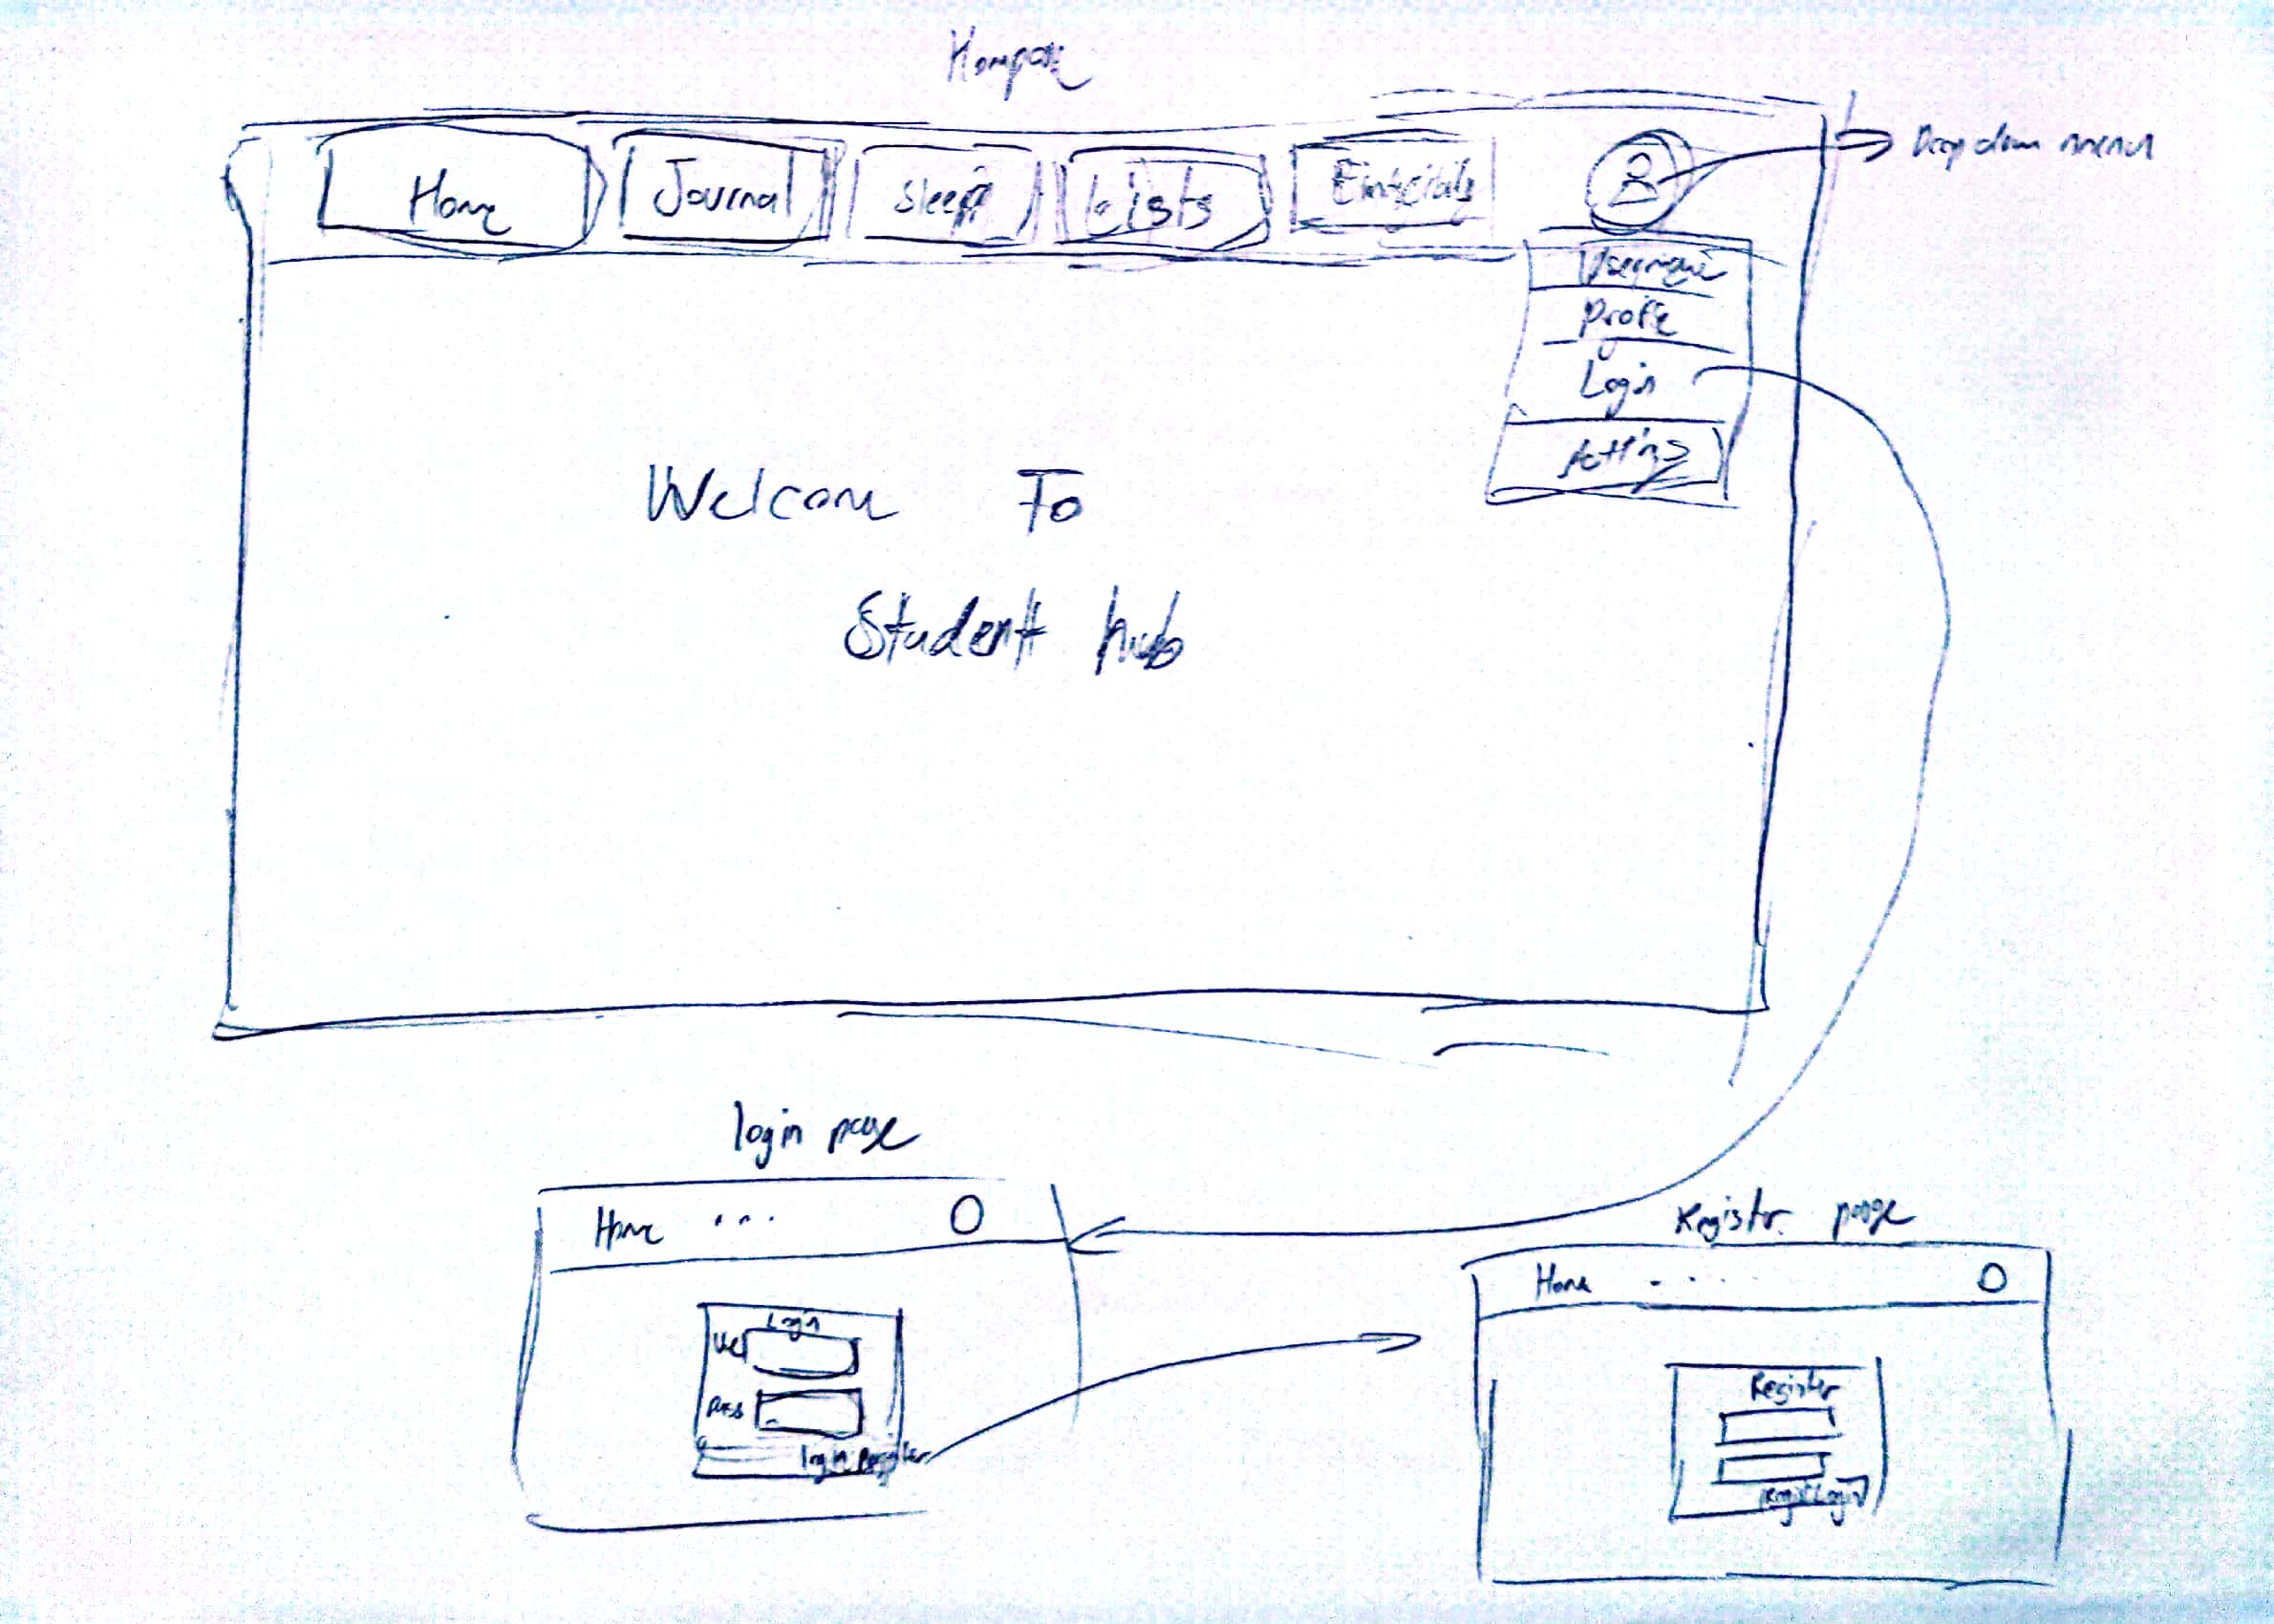 Hompage
Home Journal Sleep Lists
Drop down menu
Username
Profile
Login
Settings
Welcome To
Student hub
login page
Home ...
Login
User
Pass
login Register
Register page
Home ....
Register
Login